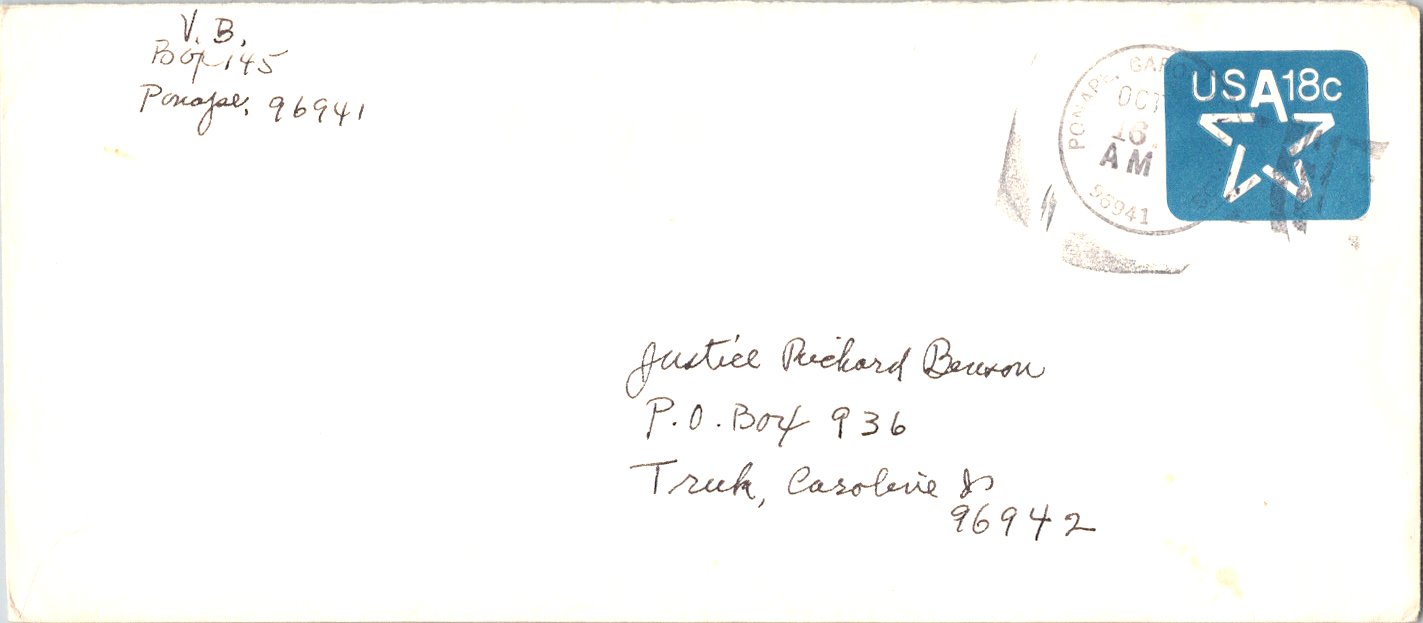 V. B.
Box 145
Ponape, 96941
PONAPE, CARO
OCT
16
AM
96941
USA 18c
Justice Richard Benson
P.O. Box 936
Truk, Caroline Is
96942